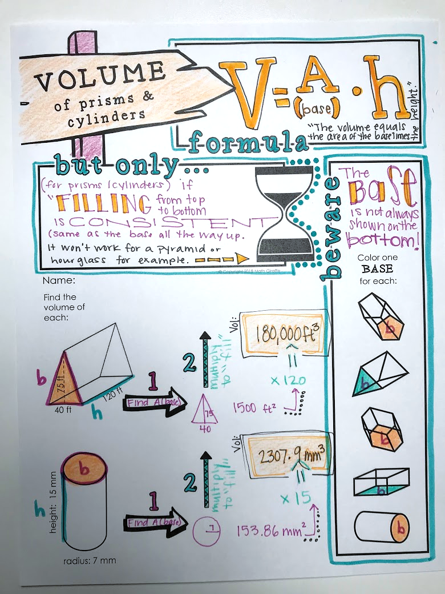 VOLUME
of prisms &
cylinders
V=A(base)·h
formula
"The volume equals
the area of the base times
the height."
but only...
(for prisms/cylinders) if
"FILLING from top
to bottom
is CONSISTENT
(same as the base all the way up.
It won't work for a pyramid or
hourglass for example.
beware
The
BASE
is not always
shown on the
bottom!
Color one
BASE
for each:
Name:
Find the
volume of
each:
b
75 ft
40 ft
h
120 ft
1
Find A(base)
2
multiply
to "fill"
75
40
1500 ft²
x 120
=
Vol:
180,000 ft³
b
h
height: 15 mm
radius: 7 mm
1
Find A(base)
2
multiply
to "fill"
7
153.86 mm²
x 15
=
Vol:
2307.9 mm³
b
b
b
b
b